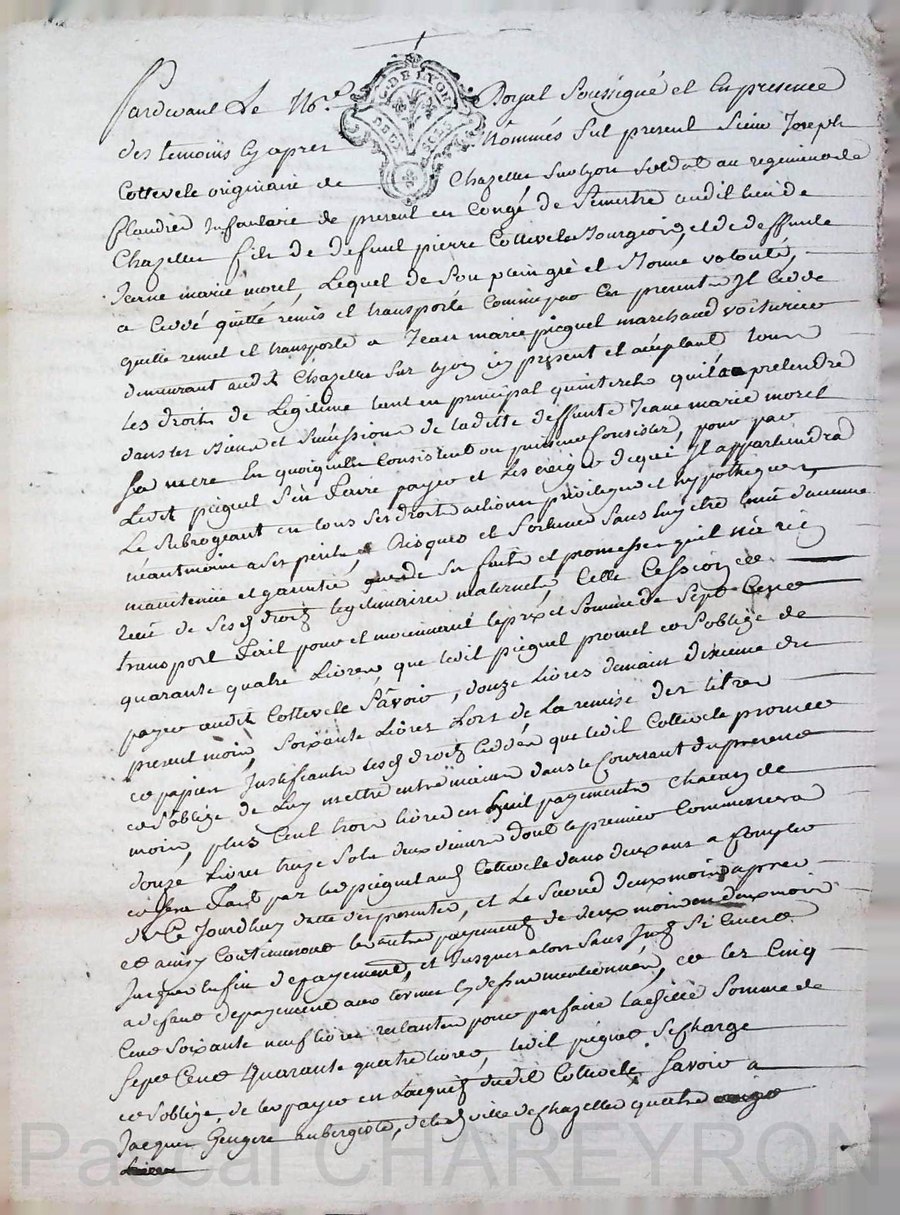 Pardevant Le No.re Royal Soussigné et En presence
G. DE LYON
DEUX SOLS
des temoins Cy apres Nommés fut present sieur Joseph
Cottevele originaire de Chazelles sur lyon soldat au regiment de
flandres Infanterie de present en Congé de Semestre audit lieu de
Chazelles fils de defunt pierre Cottevele Bourgeois, et de deffunte
Jeane marie morel, Lequel de Son plein gré et Bonne volonté,
a Ceddé quitté remis et transporté Comme par Ces presentes Il Cedde
quitte remet et transporte a Jean marie pieguel marchand voiturier
demeurant audit Chazelles sur lyon icy present et aceptant tous
Les droits de Légitime tant en principal qu'interets qu'il a a pretendre
dans les Biens et Sucession de laditte deffunte Jeane marie morel
Sa mere En quoiquils Consistent ou puissent Consister, pour par
Ledit pieguel S'en faire payer et Les exiger de qui Il appartiendra
Le Subrogeant en tous Ses droits actions privileges et hypotheques
neantmoins a Ses perils Risques et fortunes Sans luy etre tenu d'aucune
maintenüe et garantie que de Ses faits et promesses qu'il n'a rien
recu de Sesd droits legitimaires maternels, Cette Cession et
transport fait pour et moienant le prix et Somme de Sept Cent
quarante quatre Livres, que ledit pieguel promet et S'oblige de
payer audit Cottevele Sçavoir, douze Livres demain dixieme du
present mois, Soixante Livres Lors de La remise des titres
et papiers Justificatifs desd droits Ceddés que ledit Cottevele promet
et S'oblige de Luy mettre entre mains dans le Courant du present
mois, plus Cent trois livres en huit payements Chacun de
douze Livres treize Sols deux deniers dont le premier Commencera
et Sera fait par led pieguel aud Cottevele dans deux ans a Compter
de Ce Jourdhuy datte des presentes, et Le Second deux mois apres
et ainsy Continueront les autres payements de deux mois en deux mois
Jusques En fin de payement, et Jusques alors Sans Interets Si Ce n'est
a defaut de payement aux termes Cy dessus mentionnés, et les Cinq
Cent Soixante neuf livres restantes pour parfaire laditte Somme de
Sept Cent Quarante quatre livres, ledit pieguel Se Charge
et S'oblige, de les payer en Lacquit dudit Cottevele Savoir a
Jacques aubergiste, de lad ville de Chazelles quatre vingt
Livres
Pascal CHAREYRON